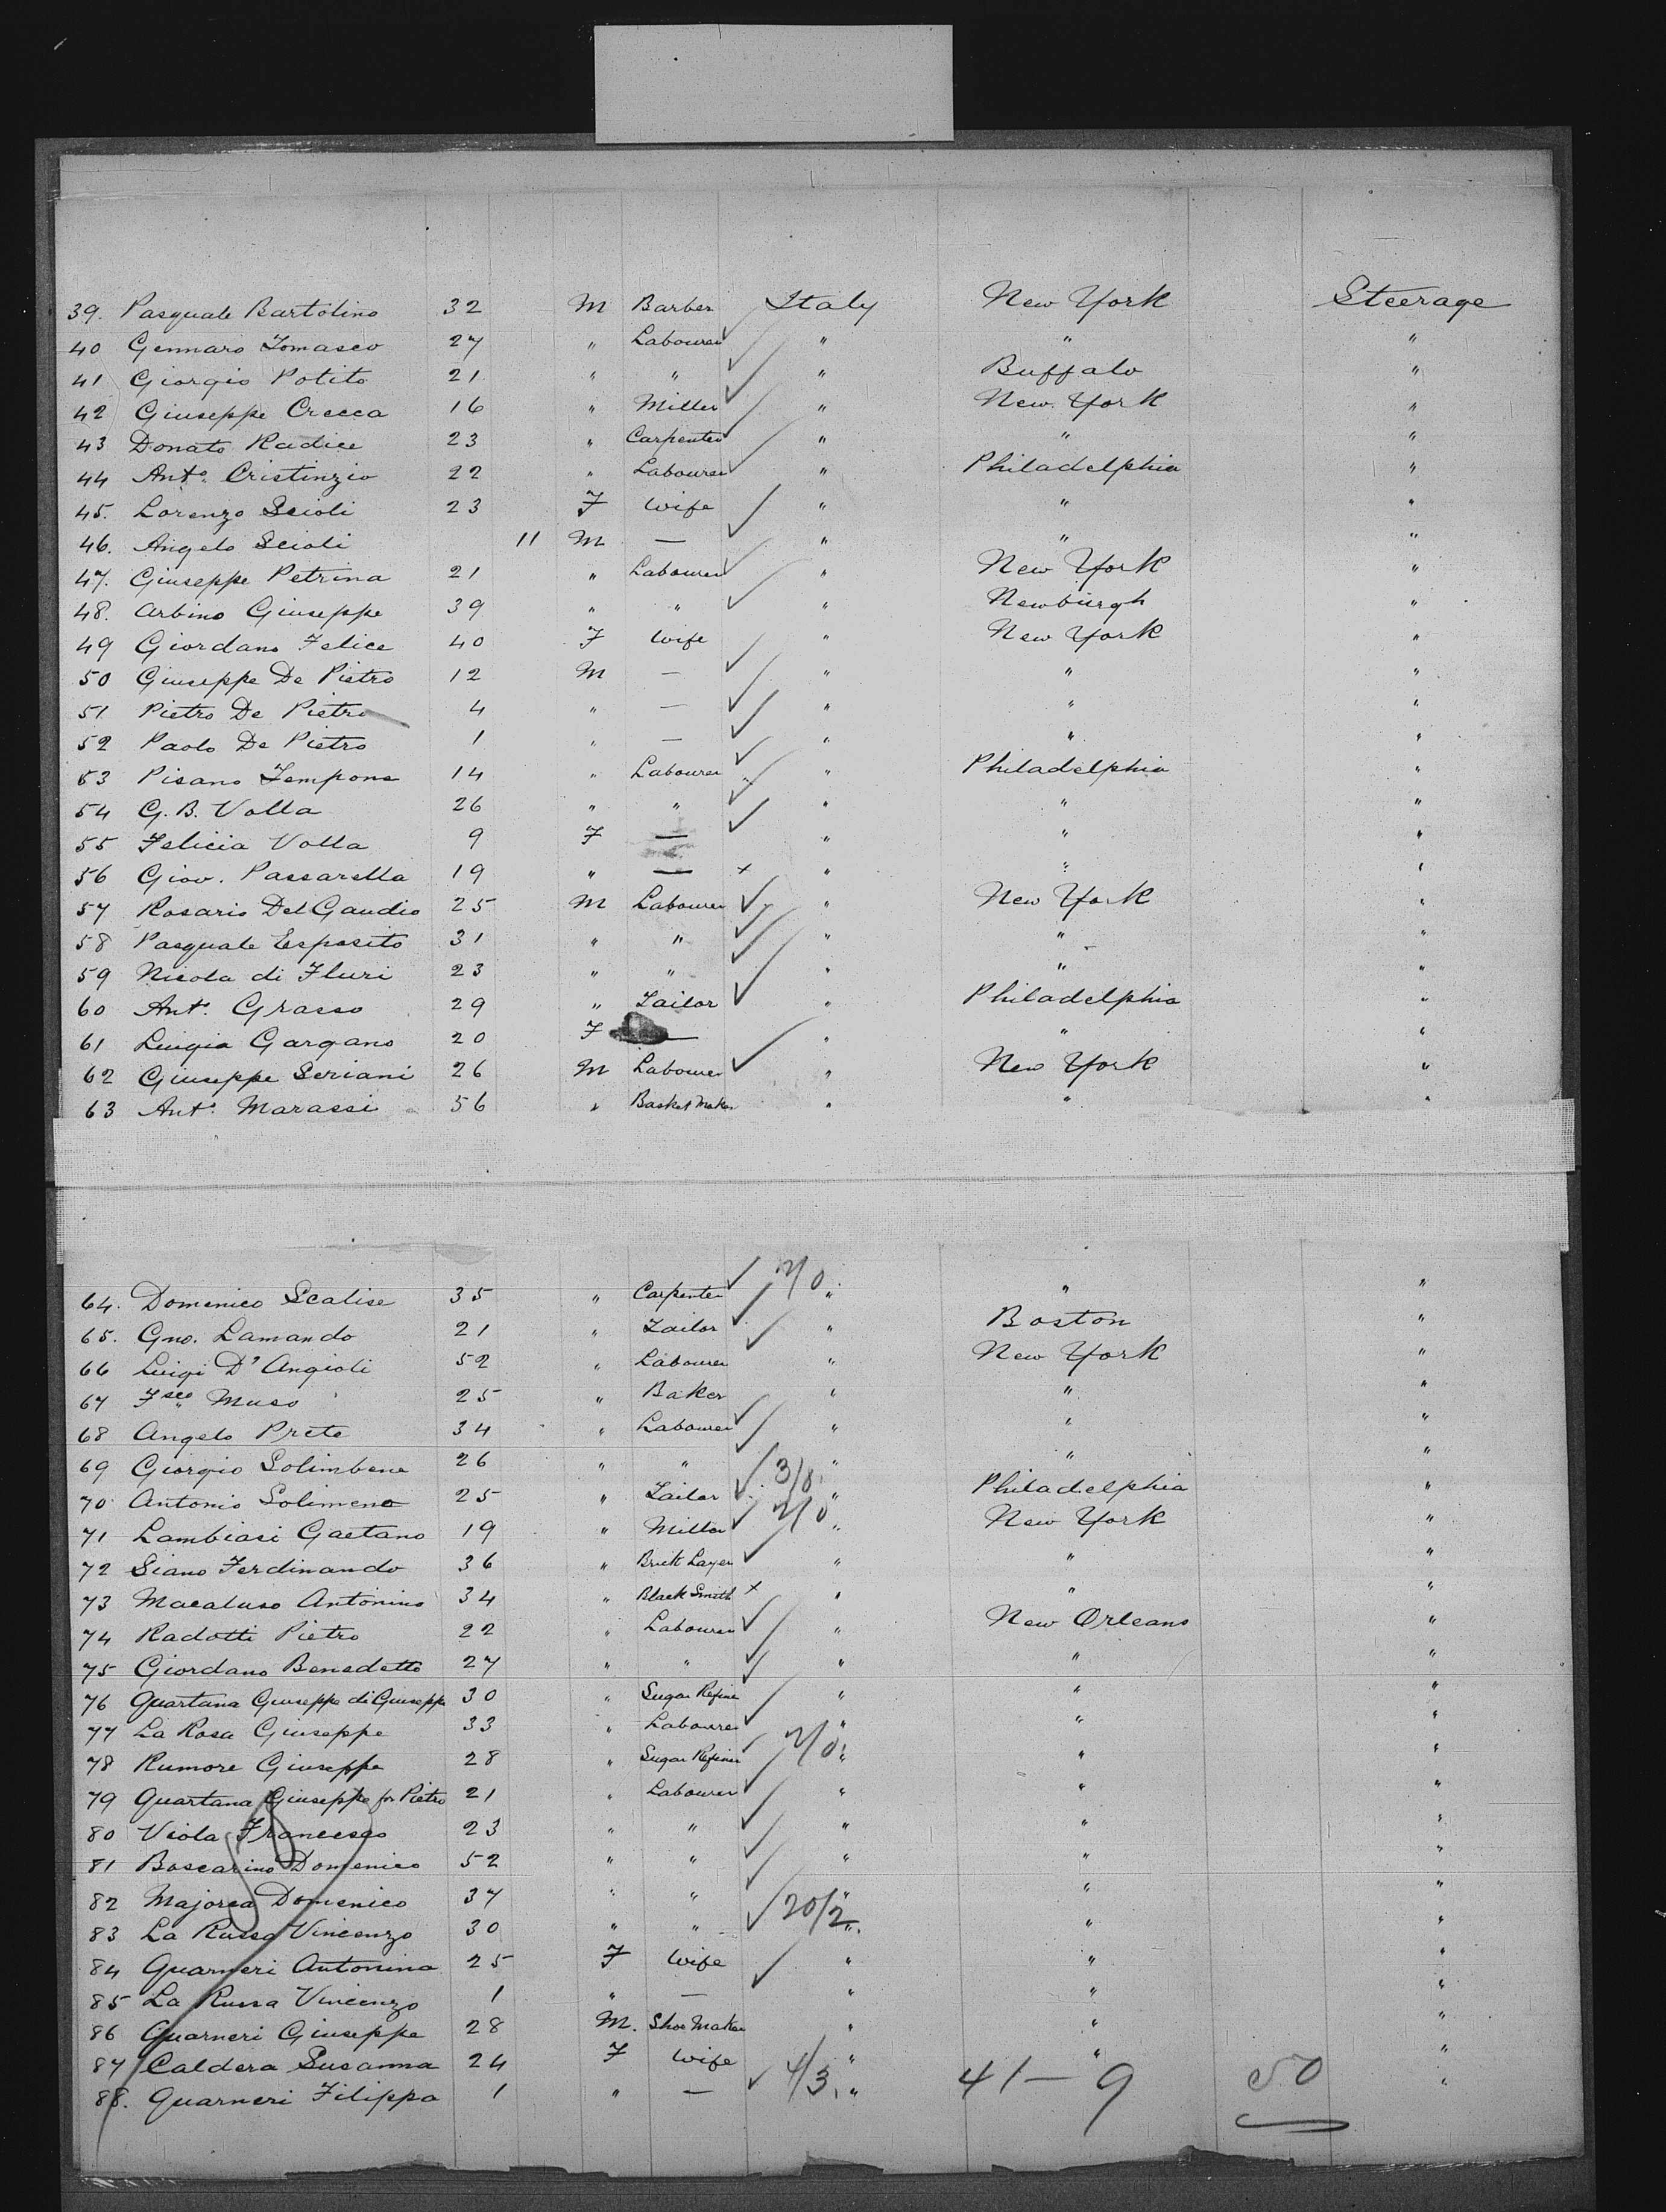 39. Pasquale Bartolino 32 M Barber Italy New York Steerage
40 Gennaro Tomasco 27 " Labourer " " "
41 Giorgio Potito 21 " " " Buffalo "
42 Giuseppe Crecca 16 " Miller " New York "
43 Donato Radice 23 " Carpenter " " "
44 Anto. Cristinzio 22 " Labourer " Philadelphia "
45. Lorenzo Scioli 23 F Wife " " "
46. Angelo Scioli 11 M — " " "
47. Giuseppe Petrina 21 " Labourer " New York "
48. Arbino Giuseppe 39 " " " Newburgh "
49 Giordano Felice 40 F Wife " New York "
50 Giuseppe De Pietro 12 M — " " "
51 Pietro De Pietro 4 " — " " "
52 Paolo De Pietro 1 " — " " "
53 Pisano Tempone 14 " Labourer " Philadelphia "
54 G. B. Volla 26 " " " " "
55 Felicia Volla 9 F — " " "
56 Giov. Passarella 19 " — x " " "
57 Rosario Del Gaudio 25 M Labourer " New York "
58 Pasquale Esposito 31 " " " " "
59 Nicola di Fluri 23 " " " " "
60 Anto. Grasso 29 " Tailor " Philadelphia "
61 Luigia Gargano 20 F — " " "
62 Giuseppe Seriani 26 M Labourer " New York "
63 Anto. Marassi 56 " Basket Maker " " "
64. Domenico Scalise 35 " Carpenter 2/0 " " "
65. Gno. Lamando 21 " Tailor " Boston "
66 Luigi D'Angioli 52 " Labourer " New York "
67 Fsco Muso 25 " Baker " " "
68 Angelo Prete 34 " Labourer " " "
69 Giorgio Solimbene 26 " " " " "
70 Antonio Solimeno 25 " Tailor 3/0 " Philadelphia "
71 Lambiasi Gaetano 19 " Miller 2/0 " New York "
72 Siano Ferdinando 36 " Brick Layer " " "
73 Macaluso Antonino 34 " Black Smith x " " "
74 Radotti Pietro 22 " Labourer " New Orleans "
75 Giordano Benedetto 27 " " " " "
76 Quartana Giuseppe di Giuseppe 30 " Sugar Refiner " " "
77 La Rosa Giuseppe 33 " Labourer " " "
78 Rumore Giuseppe 28 " Sugar Refiner 2/0 " " "
79 Quartana Giuseppe for Pietro 21 " Labourer " " "
80 Viola Francesco 23 " " " " "
81 Boscarino Domenico 52 " " " " "
82 Majorca Domenico 37 " " " " "
83 La Russa Vincenzo 30 " " 20/2 " " "
84 Guarneri Antonina 25 F Wife " " "
85 La Russa Vincenzo 1 " — " " "
86 Guarneri Giuseppe 28 M. Shoe Maker " " "
87 Caldera Susanna 24 F Wife " " "
88. Guarneri Filippa 1 " — 4/3 " 41 – 9 50 "